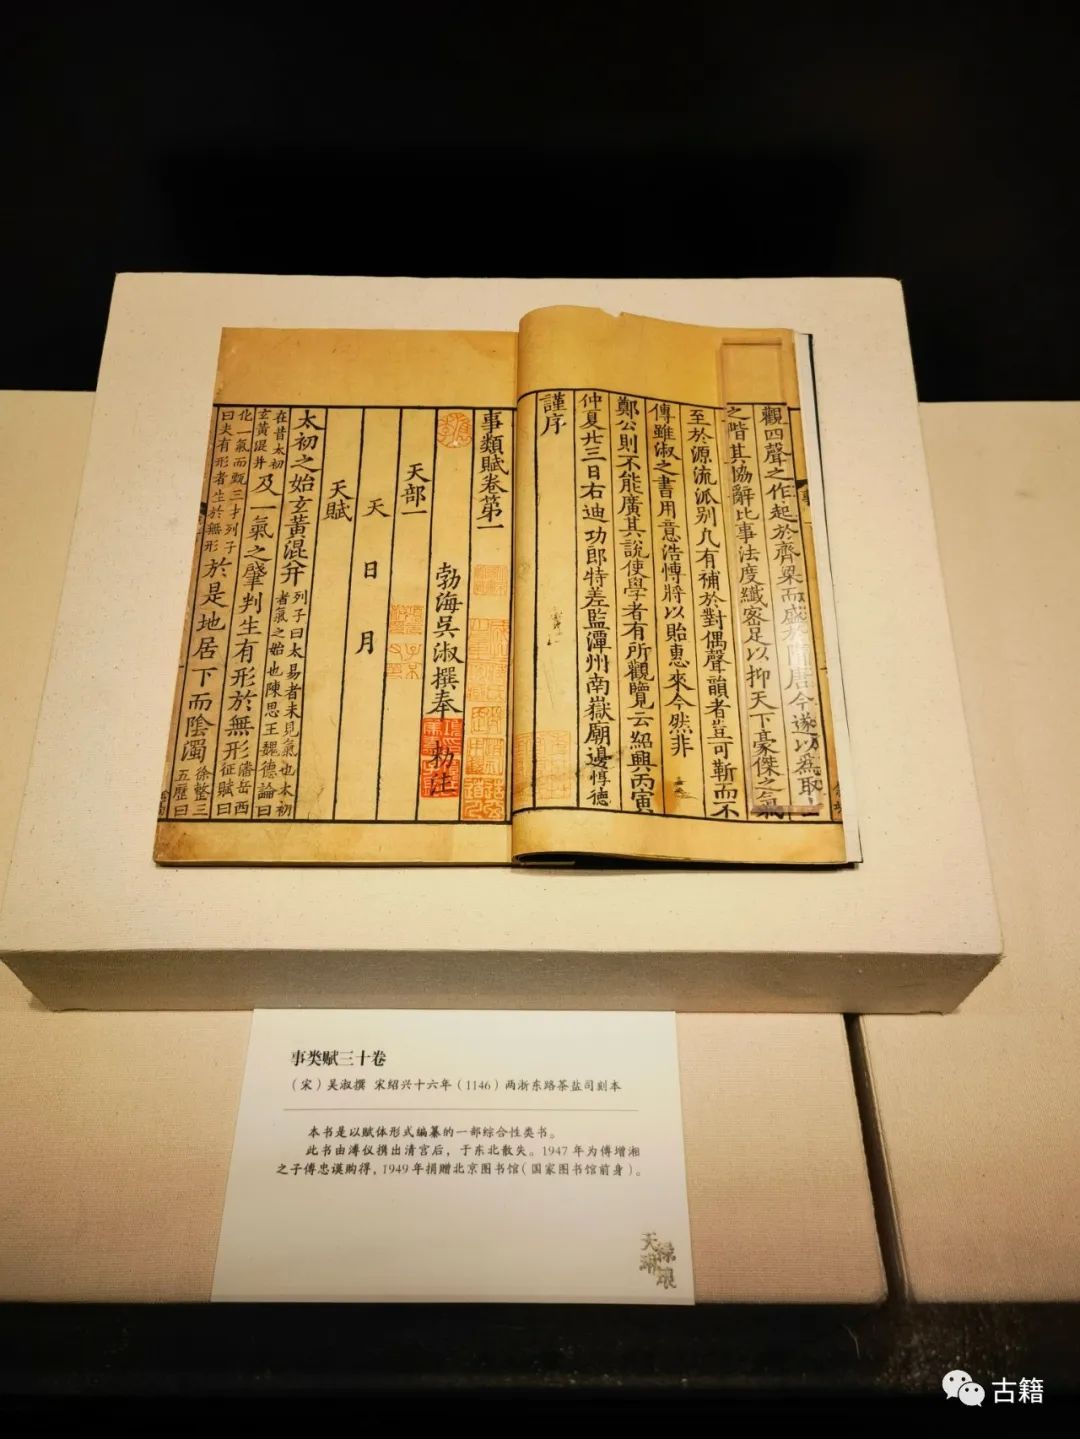 觀四聲之作起於齊梁而盛於隋唐今遂以爲取士
之階其協辭比事法度纖密足以抑天下豪傑之氣
至於源流派别凢有補於對偶聲韻者豈可靳而不
傳雖淑之書用意浩博將以貽惠來今然非
鄭公則不能廣其說使學者有所觀覽云紹興丙寅
仲夏廿三日右迪功郎特差監潭州南嶽廟邊惇德
謹序
事類賦卷第一
勃海吳淑撰奉 勑注
天部一
天 日 月
天賦
太初之始玄黃混并列子曰太易者未見氣也太初
者氣之始也陳思王魏德論曰
在昔太初
玄黃混并及一氣之肇判生有形於無形征賦曰
化一氣而甄三才列子
曰夫有形者生於無形於是地居下而陰濁徐整三
五歷曰
事类赋三十卷
（宋）吴淑撰 宋绍兴十六年（1146）两浙东路茶盐司刻本
本书是以赋体形式编纂的一部综合性类书。
此书由溥仪携出清宫后，于东北散失。1947年为傅增湘
之子傅忠谟购得，1949年捐赠北京图书馆（国家图书馆前身）。
古籍